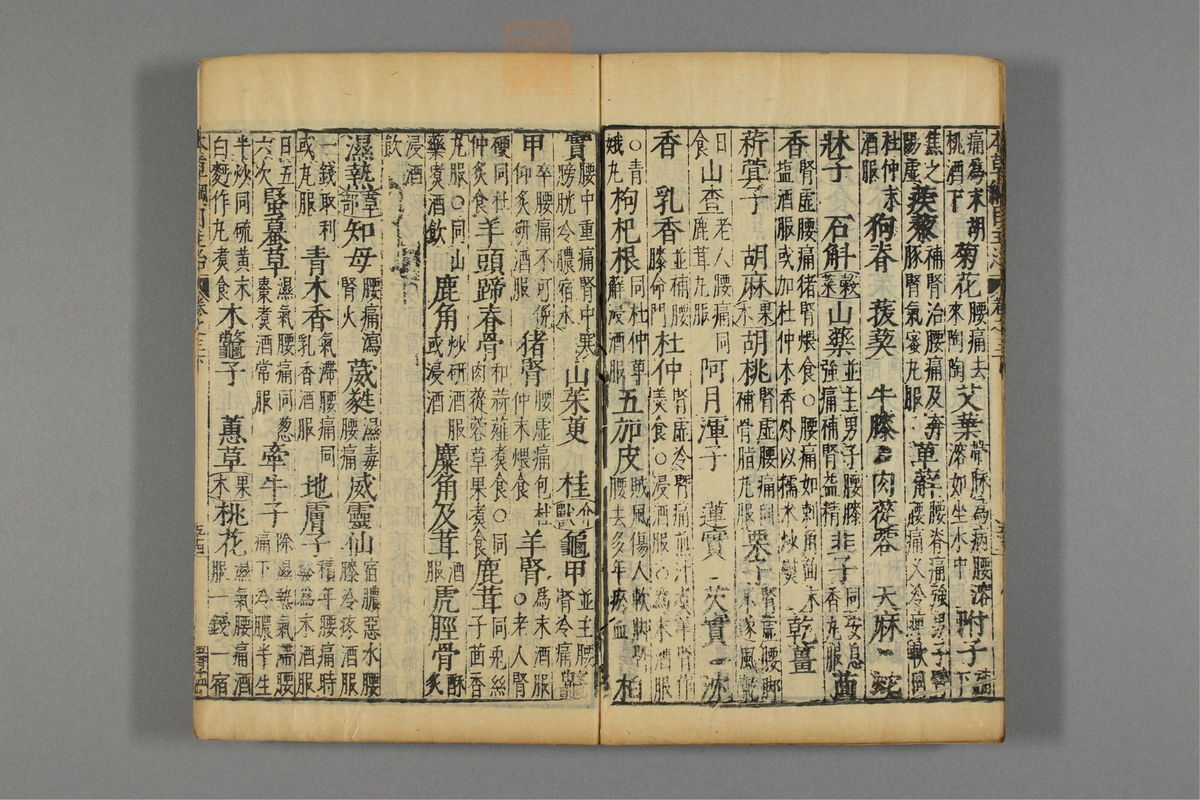 痛為末胡桃酒下 菊花 腰痛去來陶陶 艾葉 帶脉為病腰溶溶如坐水中 附子 補下
焦之陽虛 蒺藜 補腎治腰痛及奔豚腎氣蜜丸服 萆薢 腰脊痛強男子腰痛久冷痺軟同
杜仲末酒服 狗脊 菝葜 牛膝 肉蓯蓉 天麻 蛇
牀子 石斛 穀菜 山藥 並主男子腰膝強痛補腎益精 韭子 同安息香丸服 茴
香 腎虛腰痛猪腎煨食○腰痛如刺角茴末鹽酒服或加杜仲木香外以糯米炒熨 乾薑
菥蓂子 胡麻 果木 胡桃 腎虛腰痛同補骨脂丸服 栗子 腎虛腰脚不遂風乾
日食 山查 老人腰痛同鹿茸丸服 阿月渾子 蓮實 芡實 沈
香 乳香 並補腰膝命門 杜仲 腎虛冷痛煎汁煮羊腎作羹食○浸酒服○為末酒服
○青娥丸 枸杞根 同杜仲萆薢浸酒服 五加皮 賊風傷人軟脚腰去多年瘀血 柏
實 腰中重痛腎中寒膀胱冷膿宿水 山茱萸 桂 介獸 龜甲 並主腰腎冷痛 鼉
甲 卒腰痛不可俛仰炙研酒服 猪腎 腰虛痛包杜仲末煨食 羊腎 為末酒服○老人腎
硬同杜仲炙食 羊頭蹄脊骨 和蒜薤食○同肉蓯蓉草果煮食 鹿茸 同兎絲子茴香
丸服○同山藥煮酒飲 鹿角 炒研酒服或浸酒 麋角及茸 酒服 虎脛骨 酥炙
浸酒飲
濕熱 草部 知母 腰痛瀉腎火 葳蕤 濕毒腰痛 威靈仙 宿膿惡水腰膝冷疼酒服
一錢取利或丸服 青木香 氣滯腰痛同乳香酒服 地膚子 積年腰痛時發為末酒服
日五六次 蝦蟇草 濕氣腰痛同葱棗煮酒常服 牽牛子 除濕熱氣滯腰痛下冷膿半生
半炒同硫黄末白麪作丸煮食 木鼈子 蕙草 果木 桃花 濕氣腰痛酒服一錢一宿